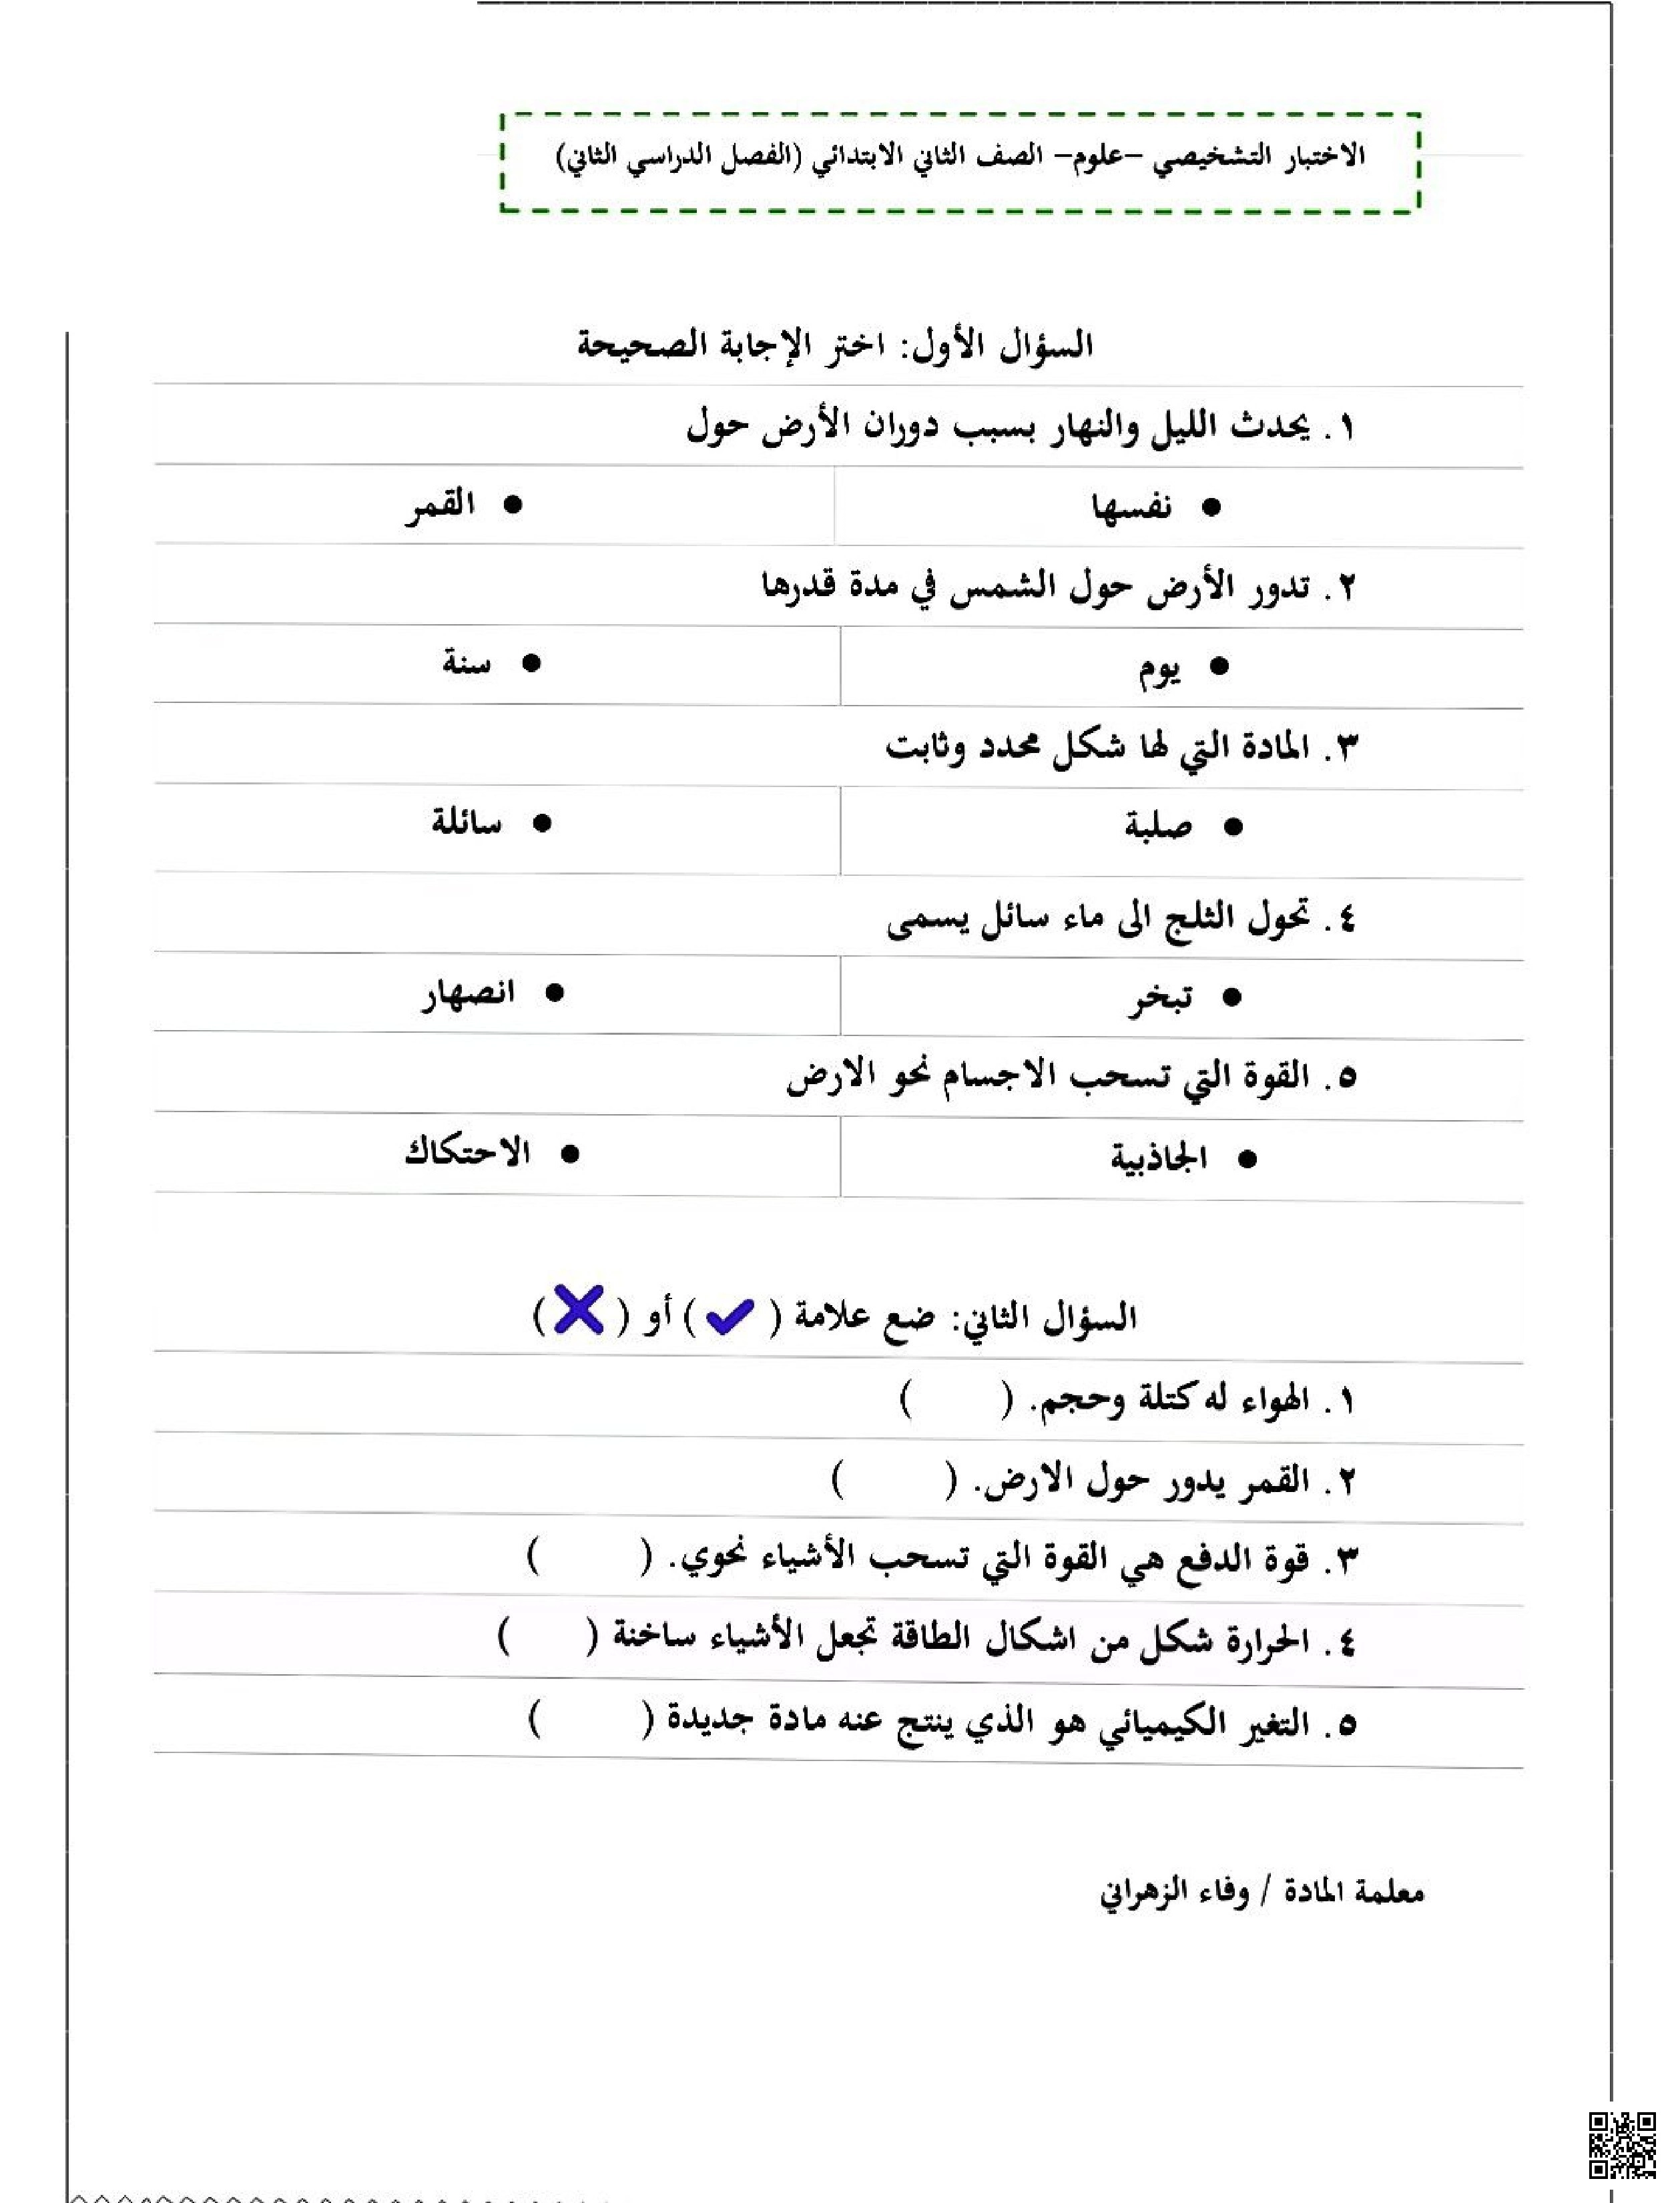 الاختبار التشخيصي –علوم– الصف الثاني الابتدائي (الفصل الدراسي الثاني)
السؤال الأول: اختر الإجابة الصحيحة
١. يحدث الليل والنهار بسبب دوران الأرض حول
● نفسها ● القمر
٢. تدور الأرض حول الشمس في مدة قدرها
● يوم ● سنة
٣. المادة التي لها شكل محدد وثابت
● صلبة ● سائلة
٤. تحول الثلج الى ماء سائل يسمى
● تبخر ● انصهار
٥. القوة التي تسحب الاجسام نحو الارض
● الجاذبية ● الاحتكاك
السؤال الثاني: ضع علامة ( ✔ ) أو ( ✖ )
١. الهواء له كتلة وحجم. ( )
٢. القمر يدور حول الارض. ( )
٣. قوة الدفع هي القوة التي تسحب الأشياء نحوي. ( )
٤. الحرارة شكل من اشكال الطاقة تجعل الأشياء ساخنة ( )
٥. التغير الكيميائي هو الذي ينتج عنه مادة جديدة ( )
معلمة المادة / وفاء الزهراني